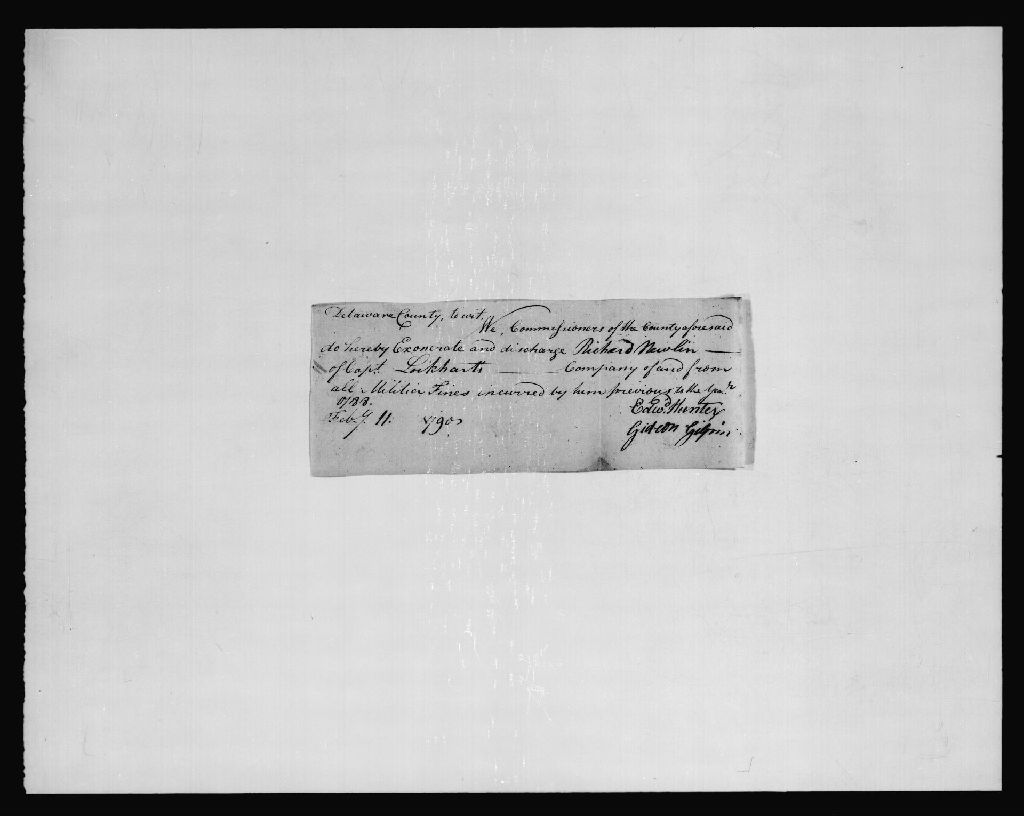 Delaware County, to wit.
We, Commissioners of the County aforesaid
do hereby Exonerate and discharge Richard Newlin
of Capt. Lockharts Company of and from
all Militia Fines incurred by him previous to the Year
1788.
Feby. 11. 1790
Edwd. Hunter
Gideon Gilpin